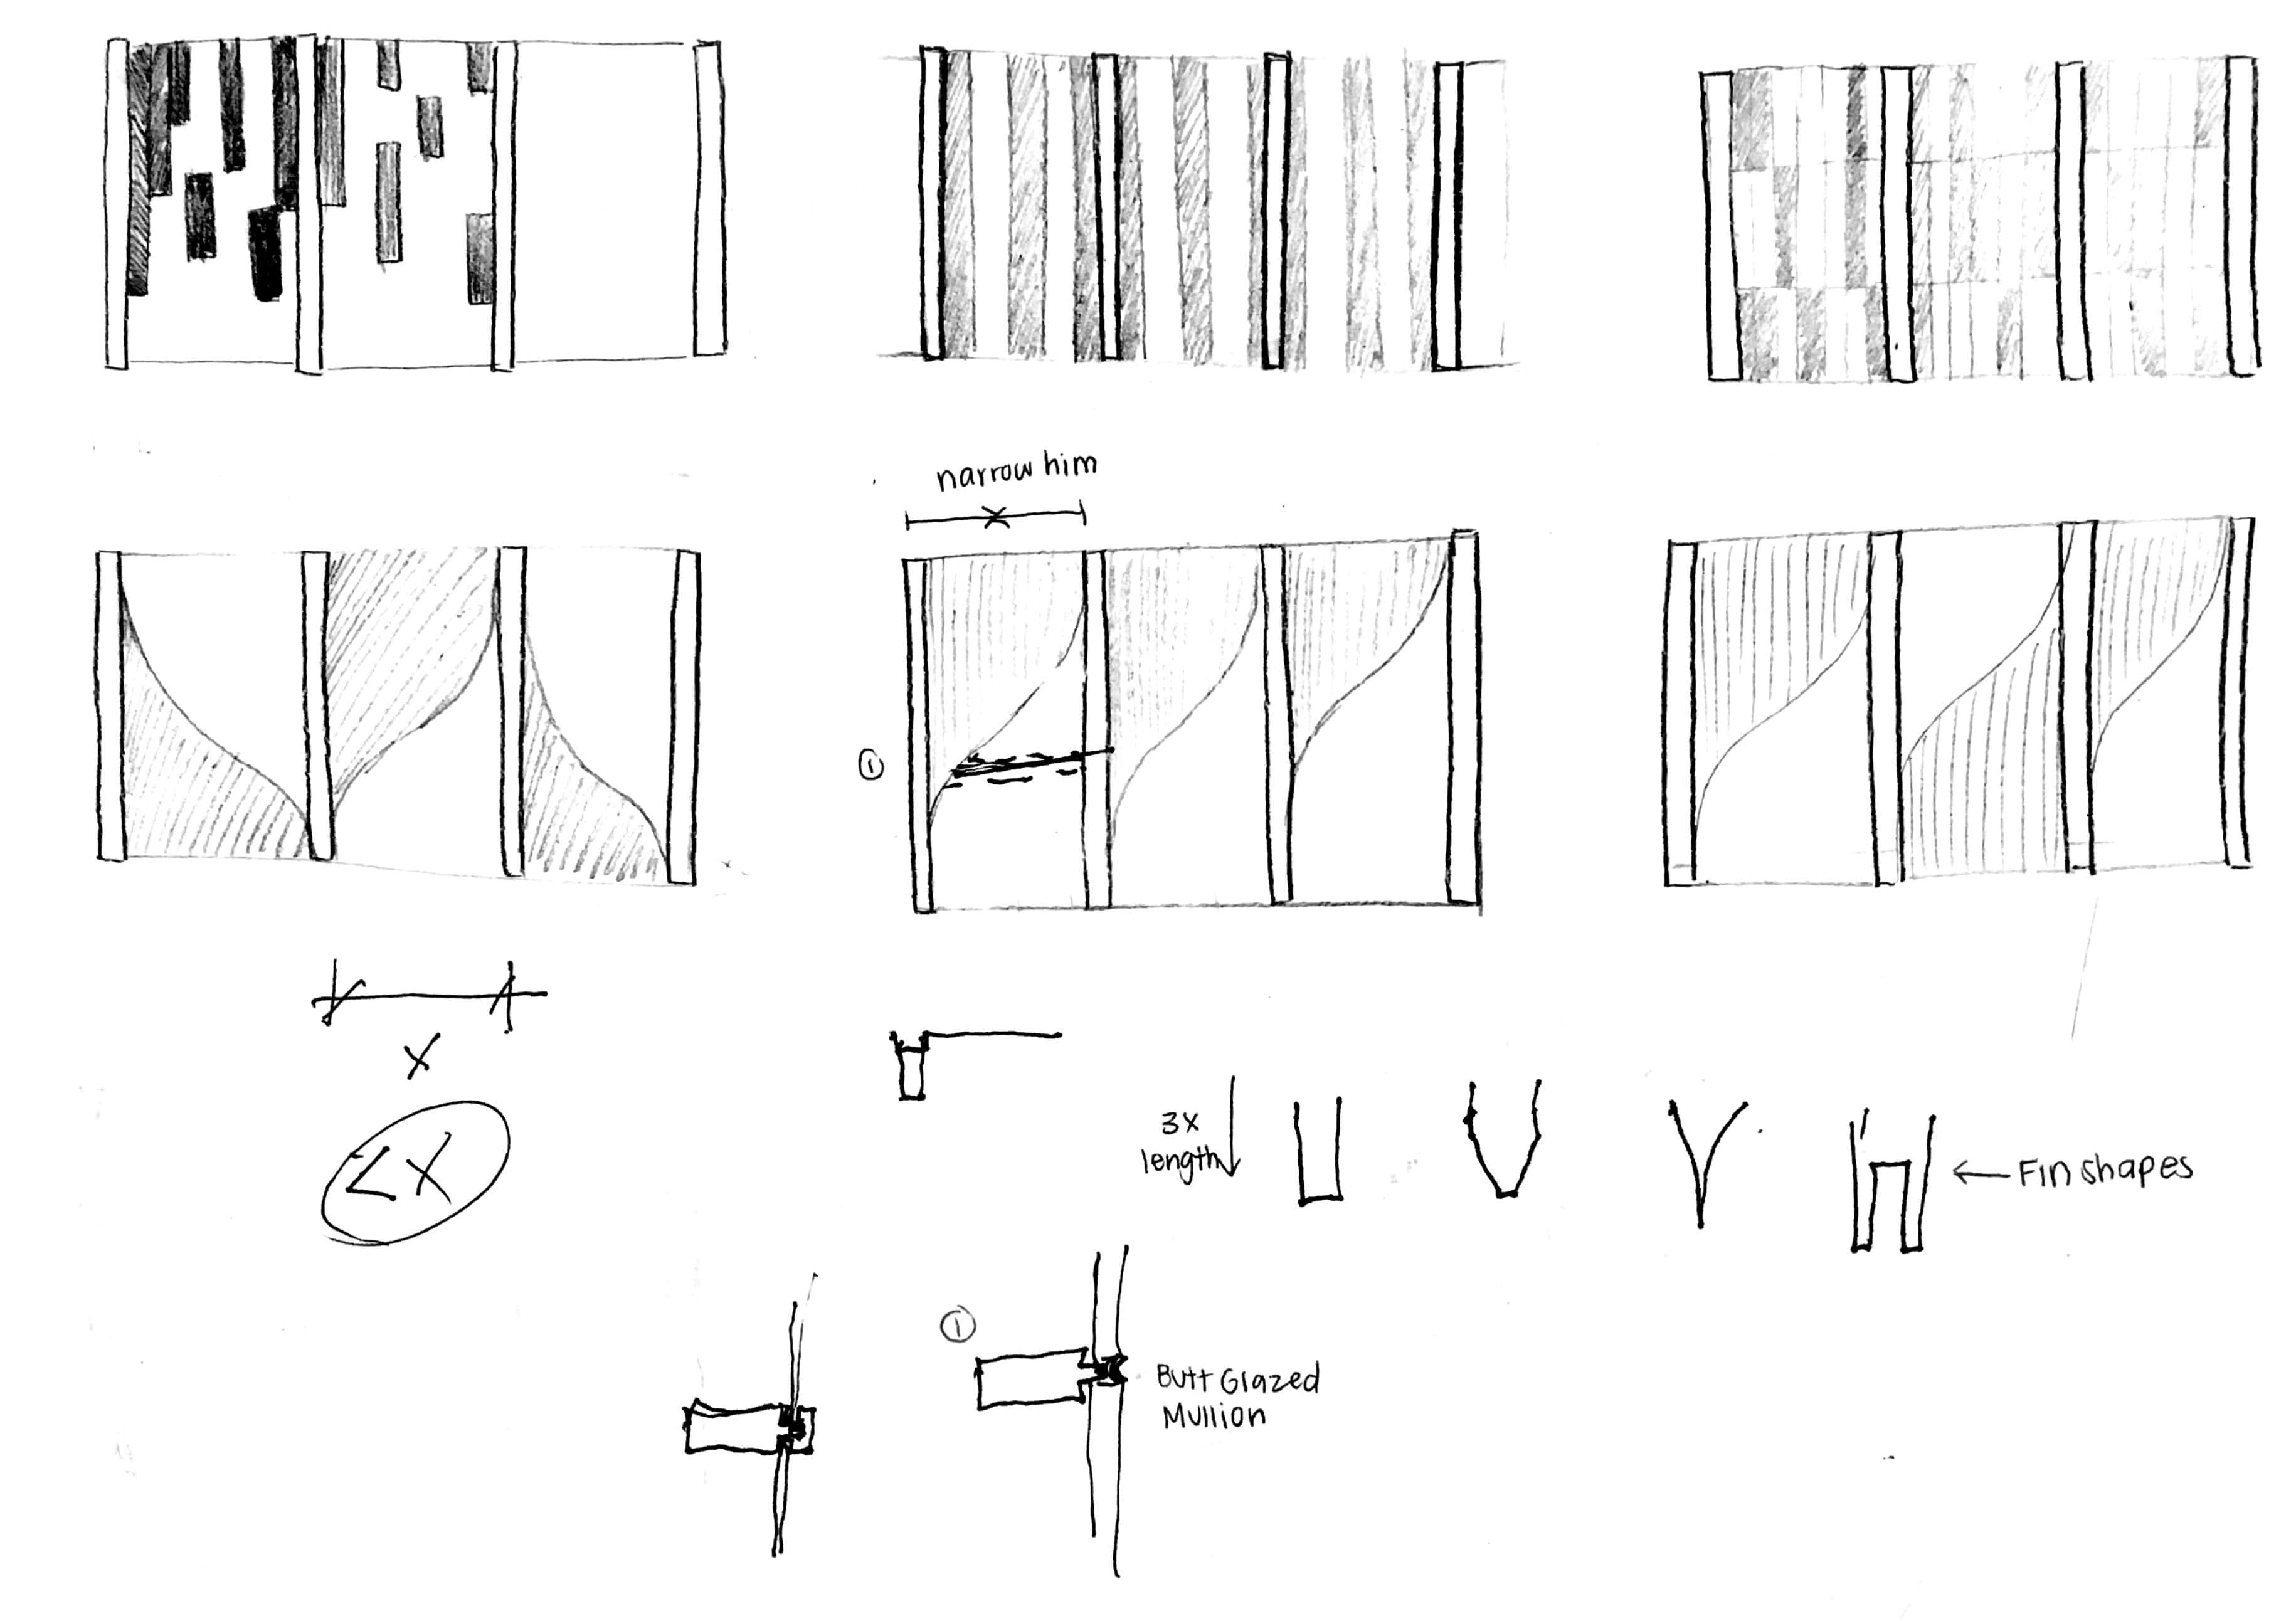 narrow him
①
X
3X
length
Fin shapes
①
Butt Glazed
Mullion